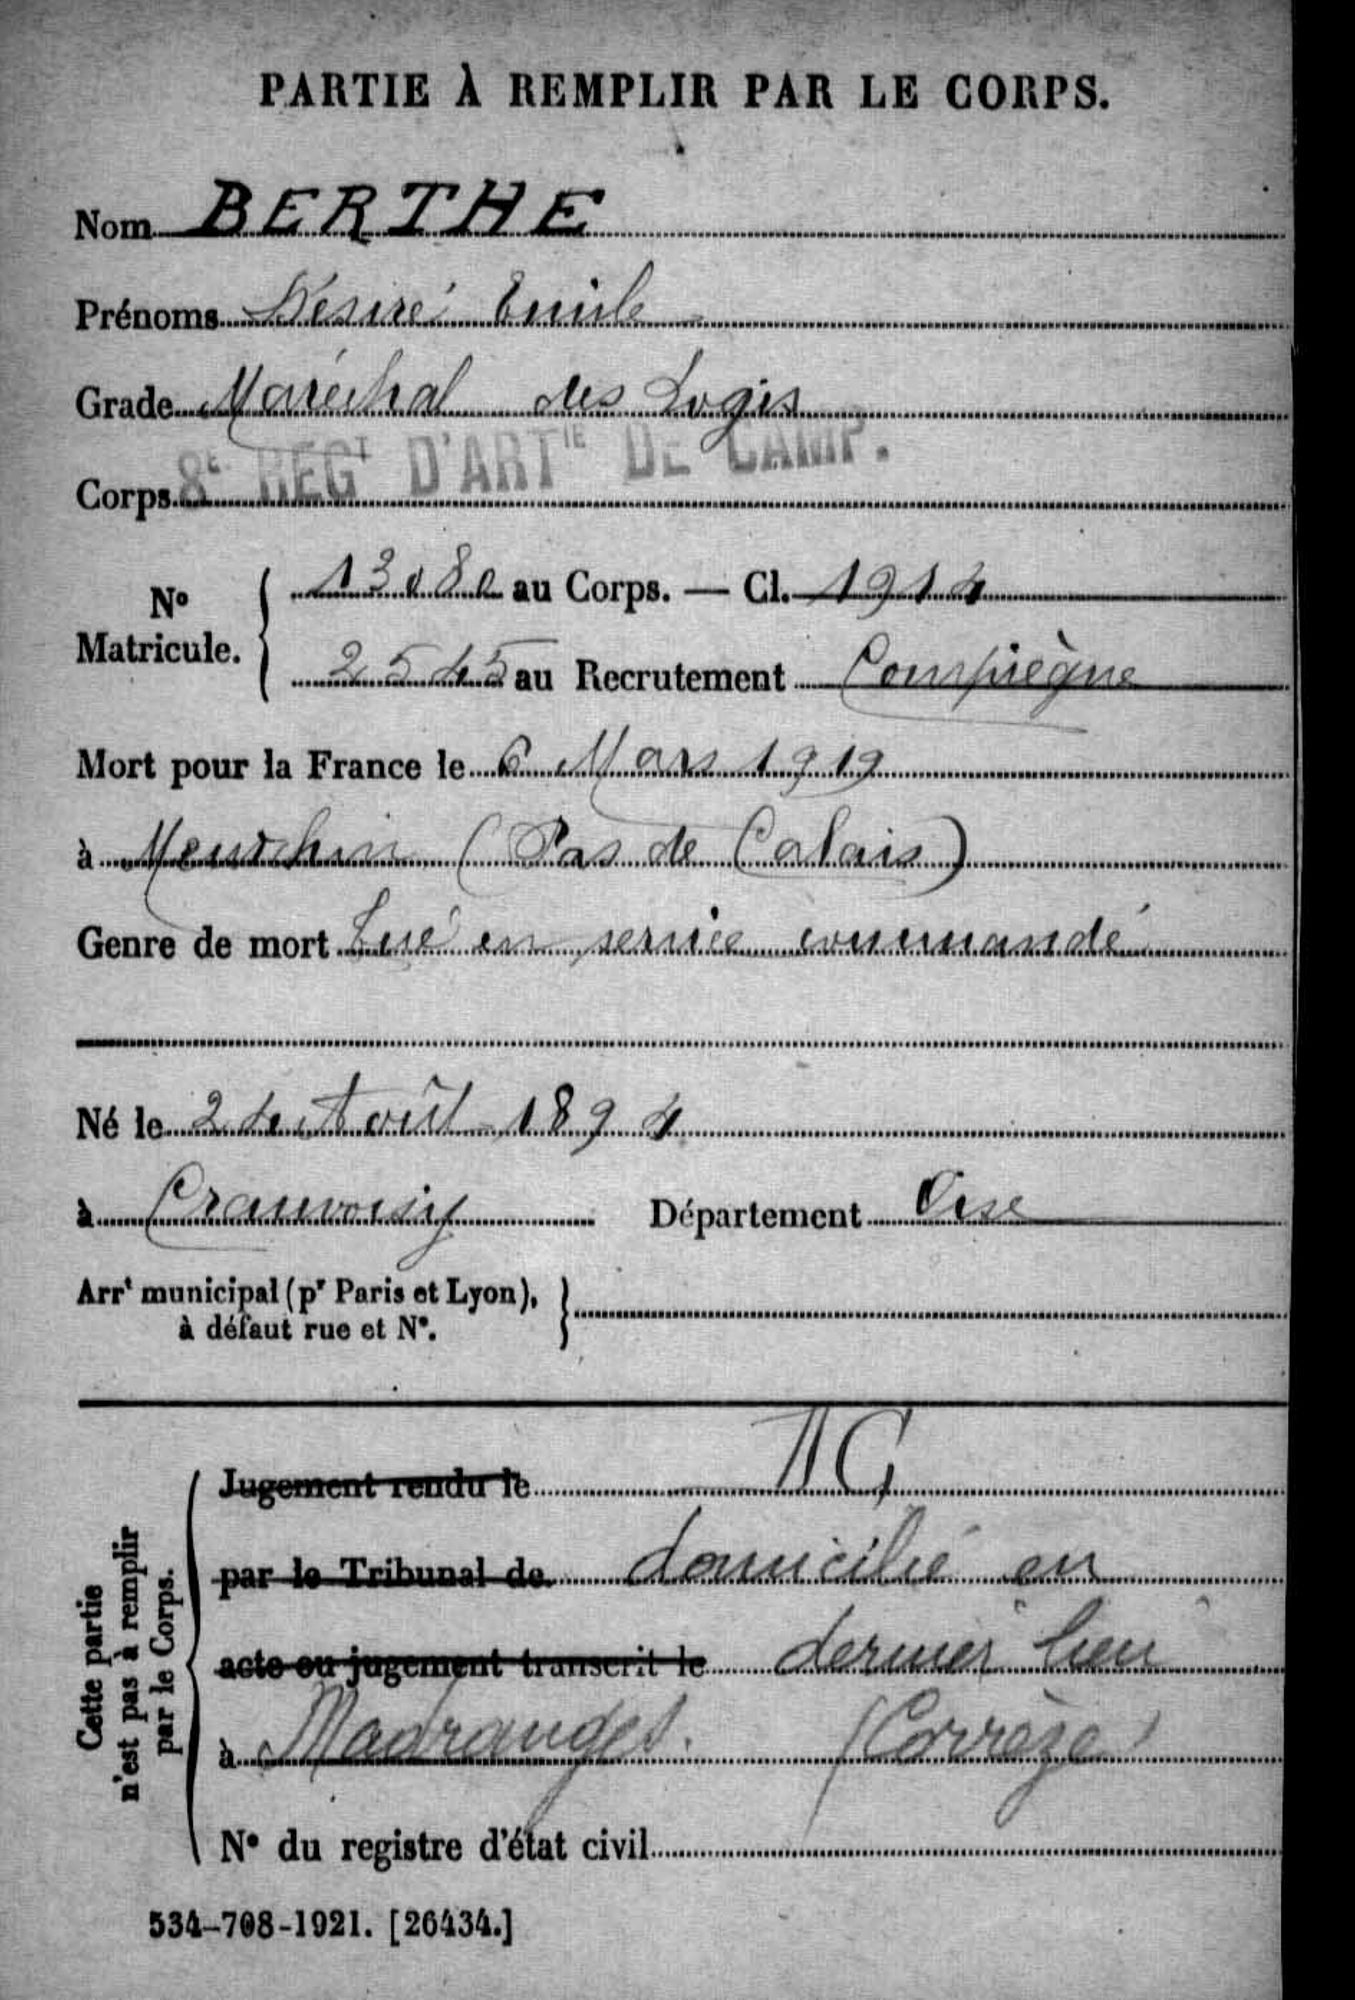 PARTIE À REMPLIR PAR LE CORPS.
Nom BERTHE
Prénoms Désiré Emile
Grade Maréchal des Logis
8E REGT D'ARTIE DE CAMP.
Corps
No Matricule.
13080 au Corps. — Cl. 1914
2545 au Recrutement Compiègne
Mort pour la France le 6 Mars 1919
à Meurchin (Pas de Calais)
Genre de mort Tué en service commandé
Né le 24 Août 1894
à Cramoisy Département Oise
Arrt municipal (pr Paris et Lyon),
à défaut rue et No.
Cette partie
n'est pas à remplir
par le Corps.
Jugement rendu le
par le Tribunal de domicilié en
acte ou jugement transcrit le dernier lieu
à Madranges. (Corrèze)
No du registre d'état civil
534-708-1921. [26434.]